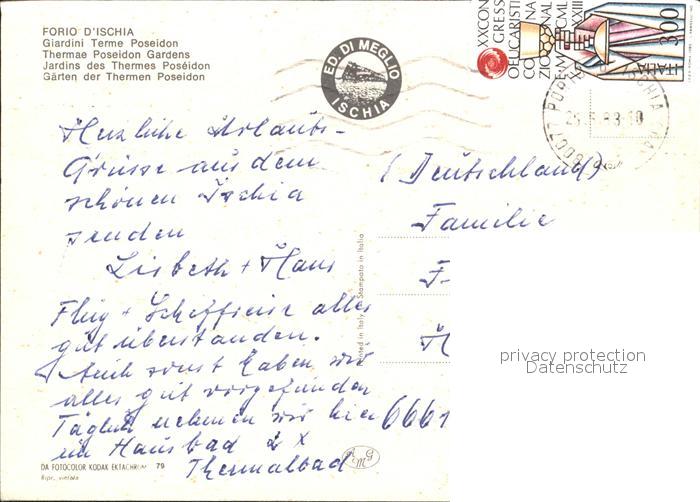 FORIO D'ISCHIA
Giardini Terme Poseidon
Thermae Poseidon Gardens
Jardins des Thermes Poséidon
Gärten der Thermen Poseidon
ED. DI MEGLIO
ISCHIA
XX CON
GRESS
O EUCARISTI
CO NA
ZIONAL
E MCML
XXXIII
ITALIA 300
Herzliche Urlaubs-
Grüsse aus dem
schönen Ischia
senden
Lisbeth + Hans
Flug + Schiffreise alles
gut überstanden.
Auch sonst haben wir
alles gut vorgefunden
Täglich nehmen wir hier
im Hausbad 2 x
Thermalbad
(Deutschland)
Familie
F
H
6661
Printed in Italy - Stampato in Italia
privacy protection
Datenschutz
DA FOTOCOLOR KODAK EKTACHROM 79
Ripr. vietata